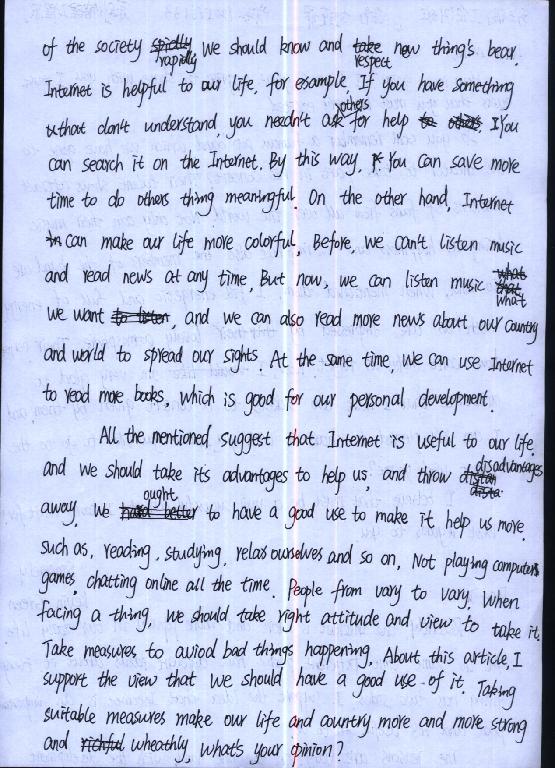 of the society rapidly We should know and respect new thing's bear.
Internet is helpful to our life, for esample, If you have something
that don't understand, you needn't ask others for help I You
can search it on the Internet. By this way, You can save more
time to do others thing meaningful. On the other hand, Internet
can make our life more colorful, Before, we can't listen music
and read news at any time, But now, we can listen music what
we want, and we can also read more news about our country
and world to spread our sights. At the same time, we can use Internet
to read more books, which is good for our personal development.
All the mentioned suggest that Internet is useful to our life.
and we should take its advantages to help us, and throw disadvantages
away. We ought to have a good use to make it help us more.
such as, reading, studying, relax ourselves and so on, Not playing computers
games, chatting online all the time. People from vary to vary. When
facing a thing, we should take right attitude and view to take it.
Take measures to aviod bad things happening. About this article, I
support the view that we should have a good use of it. Taking
suitable measures make our life and country more and more strong
and wheathly, what's your opinion?